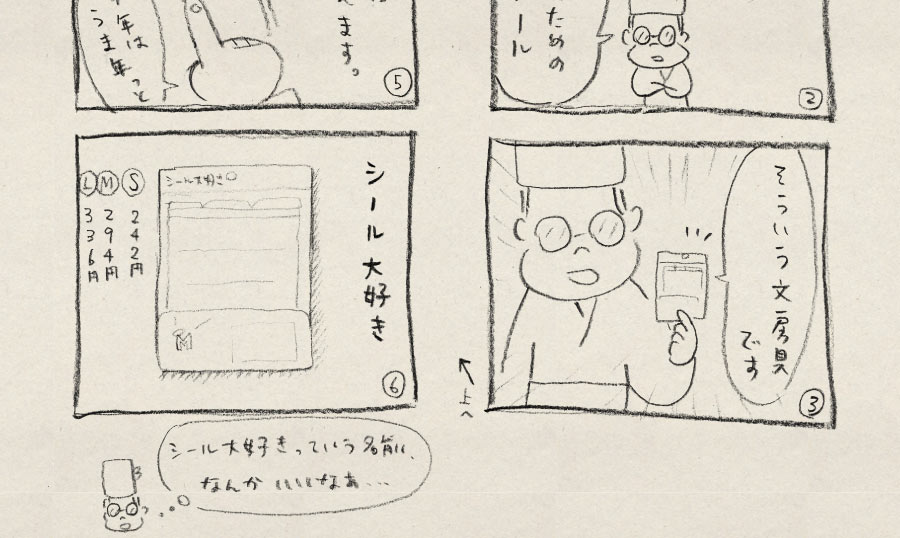 ための
ール
②
そういう文房具
です
③
↑上へ
ます。
年は
うま年っと
⑤
シール大好き
シール大好き
Ⓢ 242円
Ⓜ 294円
Ⓛ 336円
M
⑥
シール大好きっていう名前、
なんかいいなあ…